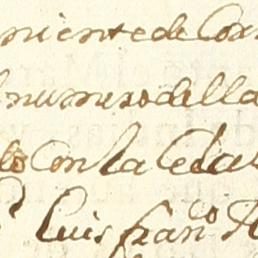 niente de Cor
numero della
to Con la Cedul
Luis fran^co